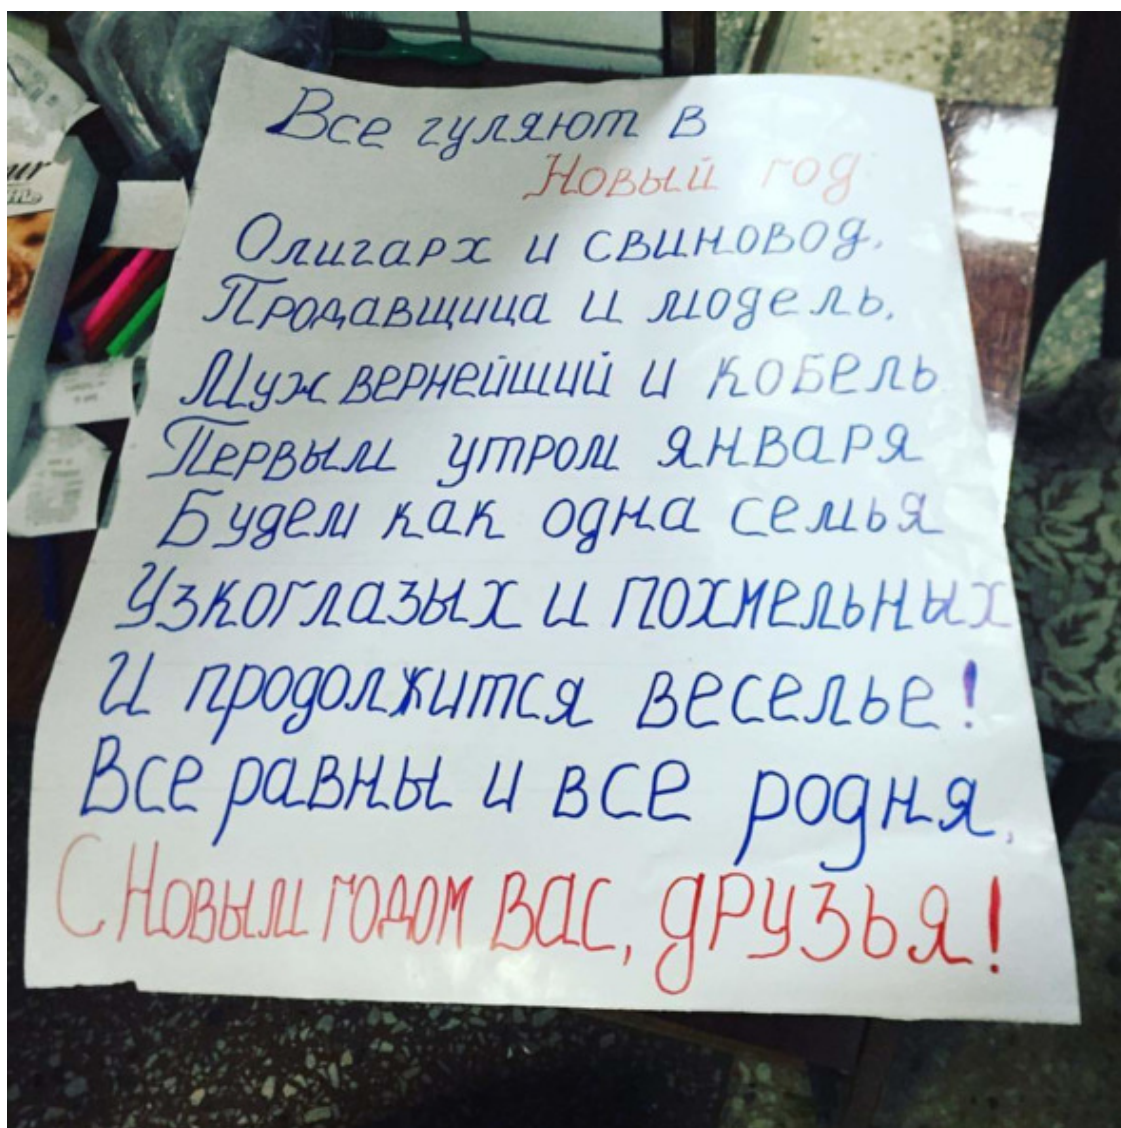 Все гуляют в
Новый год
Олигарх и свиновод,
Продавщица и модель,
Муж вернейший и кобель
Первым утром января
Будем как одна семья
Узкоглазых и похмельных
И продолжится веселье!
Все равны и все родня,
С Новым годом вас, друзья!